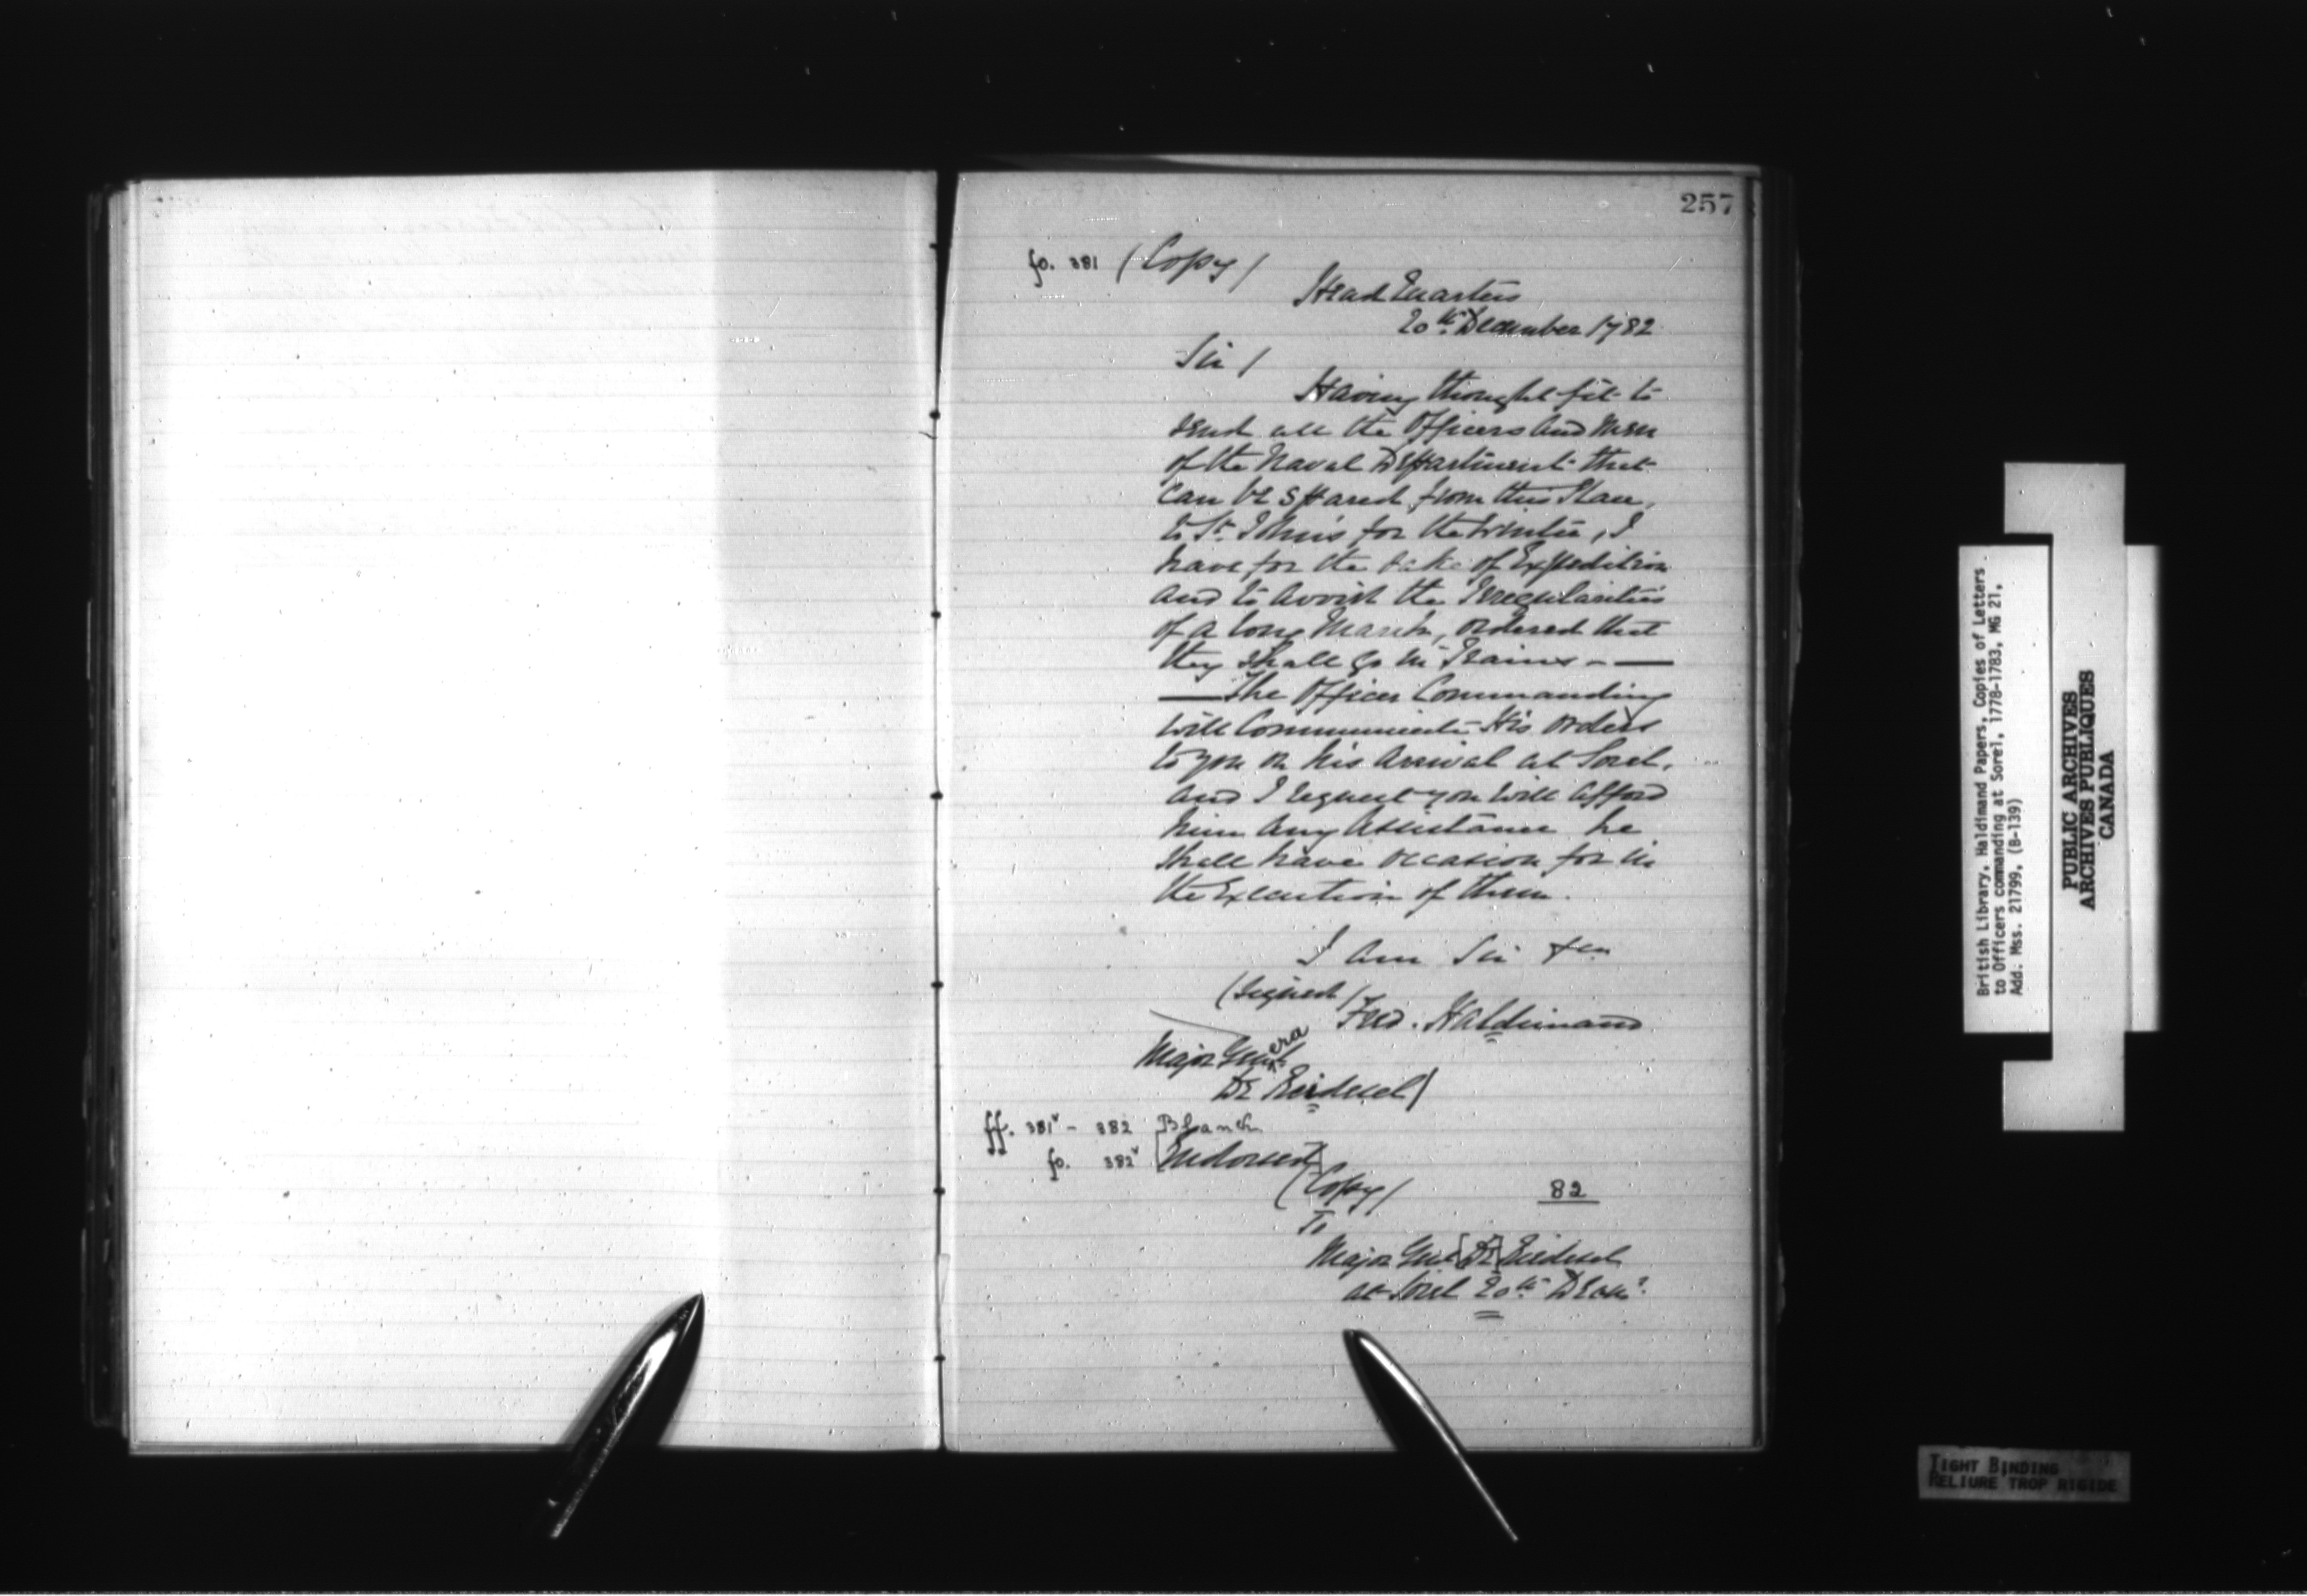 257
fo. 381 (Copy/
Head Quarters
20th. December 1782
Sir /
Having thought fit to
send all the Officers and Men
of the Naval Department that
can be spared from this Place,
to St. John's for the Winter, I
have for the sake of Expedition
and to avoid the Irregularities
of a long March, ordered that
they shall go in Trains -
The Officer Commanding
will Communicate His orders
to you on his Arrival at Sorel,
and I request you will afford
him any Assistance he
shall have occasion for in
the Execution of them.
I am Sir &ca
(Signed/
Fred. Haldimand
Major Genl era
De Reidesel)
ff. 381v - 382 Blank
fo. 382v [Endorsed]
(Copy/ 82
To
Major Genl [De] Reidesel
at Sorel 20th Decemr
British Library, Haldimand Papers, Copies of Letters
to Officers commanding at Sorel, 1778-1783, MG 21,
Add. Mss. 21799, (B-139)
PUBLIC ARCHIVES
ARCHIVES PUBLIQUES
CANADA
TIGHT BINDING
RELIURE TROP RIGIDE